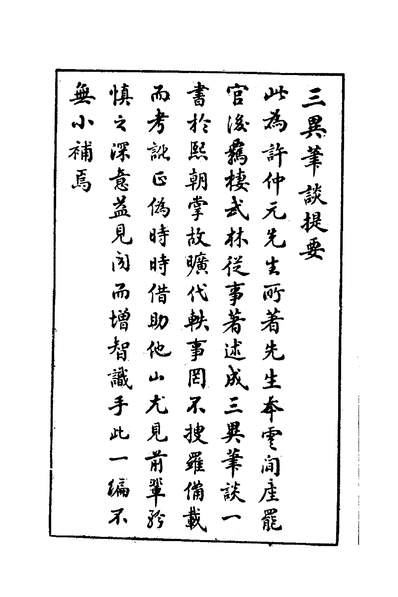 三異筆談提要
此為許仲元先生所著先生本雲間產罷
官後羈棲武林從事著述成三異筆談一
書於熙朝掌故曠代軼事罔不搜羅備載
而考訛正偽時時借助他山尤見前輩矜
慎之深意益見聞而增智識手此一編不
無小補焉